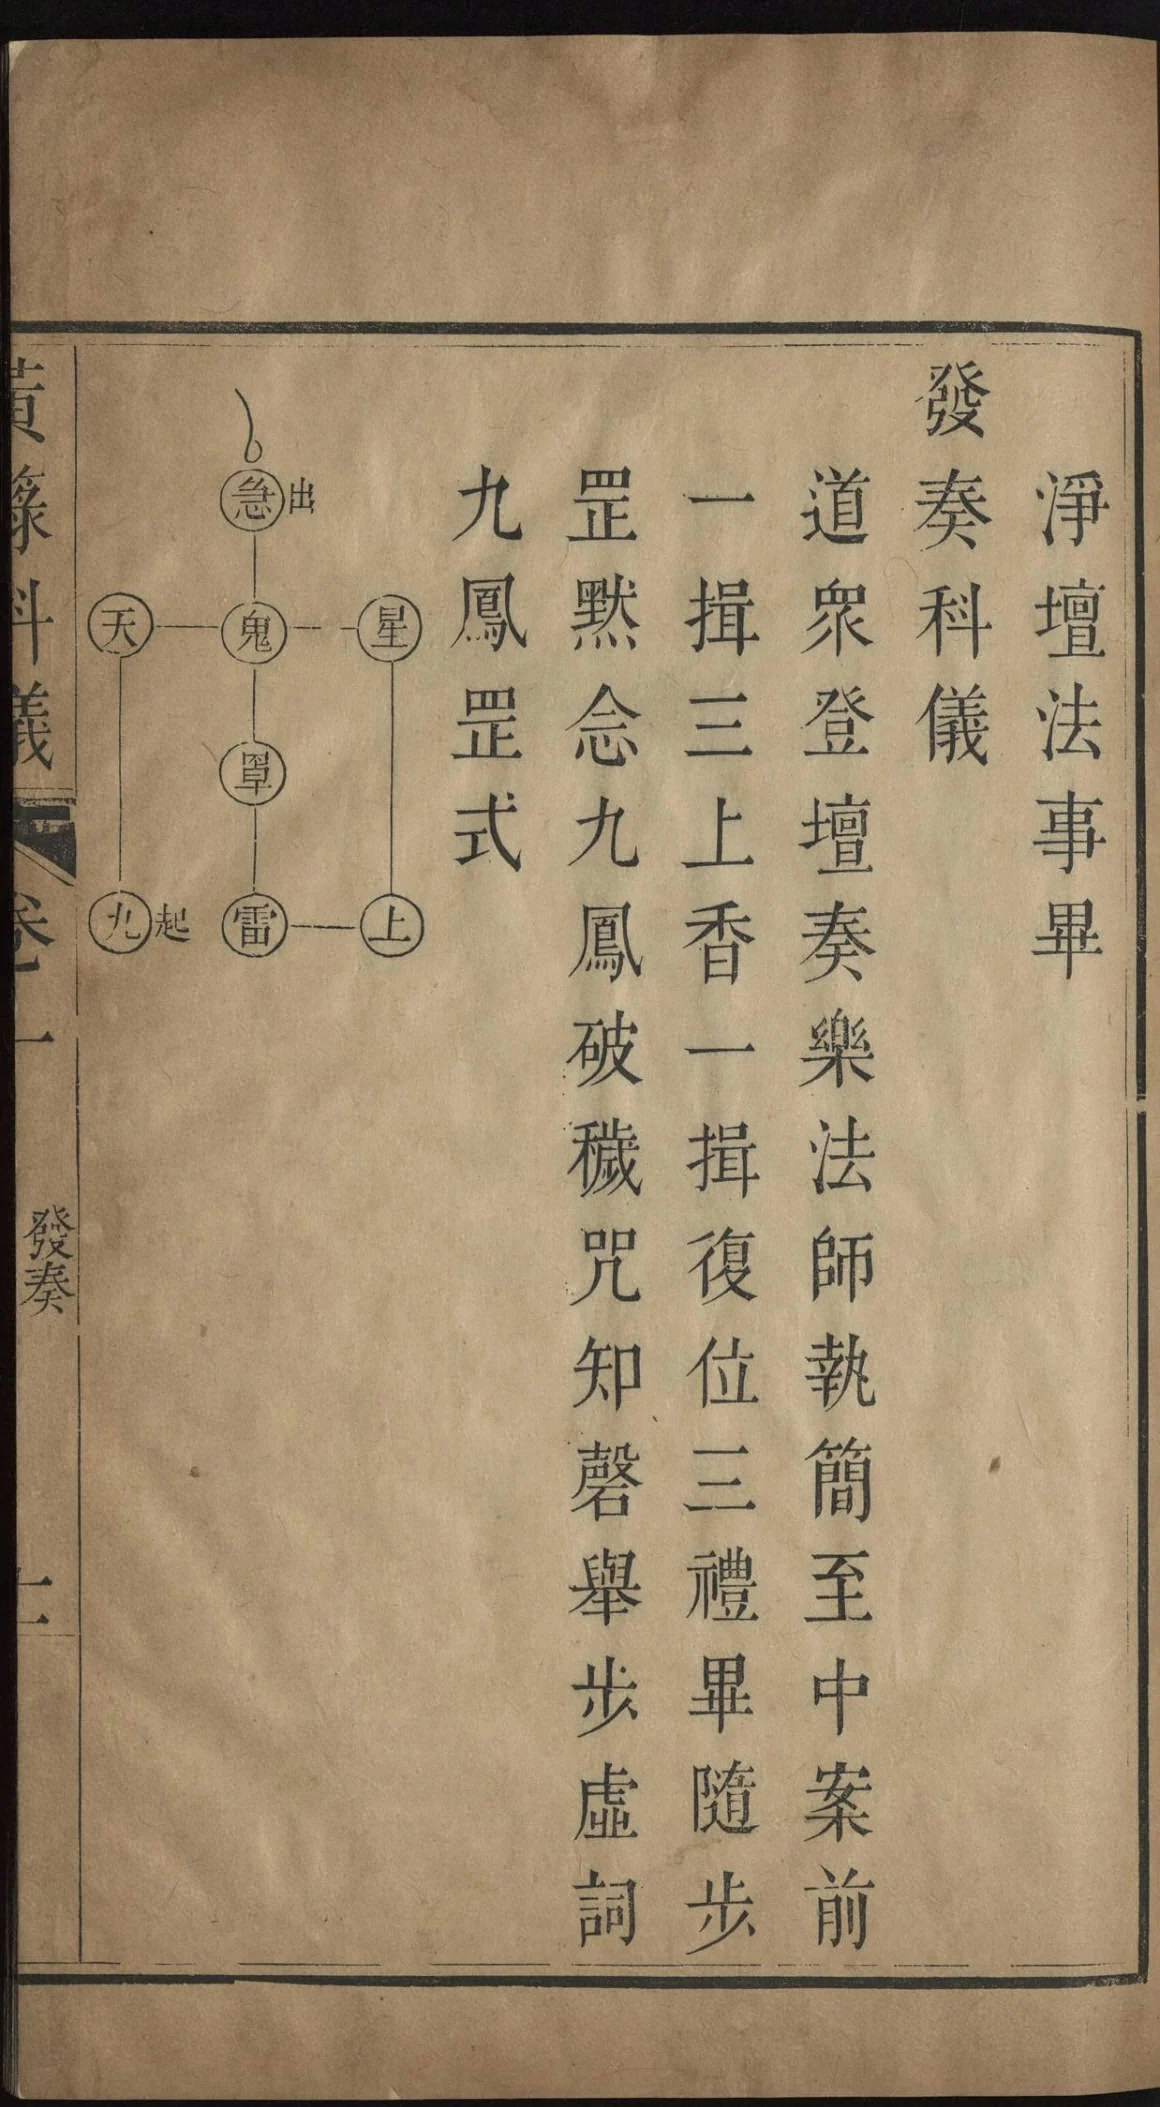 淨壇法事畢
發奏科儀
道衆登壇奏樂法師執簡至中案前
一揖三上香一揖復位三禮畢隨步
罡默念九鳳破穢咒知磬舉步虛詞
九鳳罡式
急出
星 鬼 天
罩
上 雷 九起
黃籙科儀
卷一
發奏